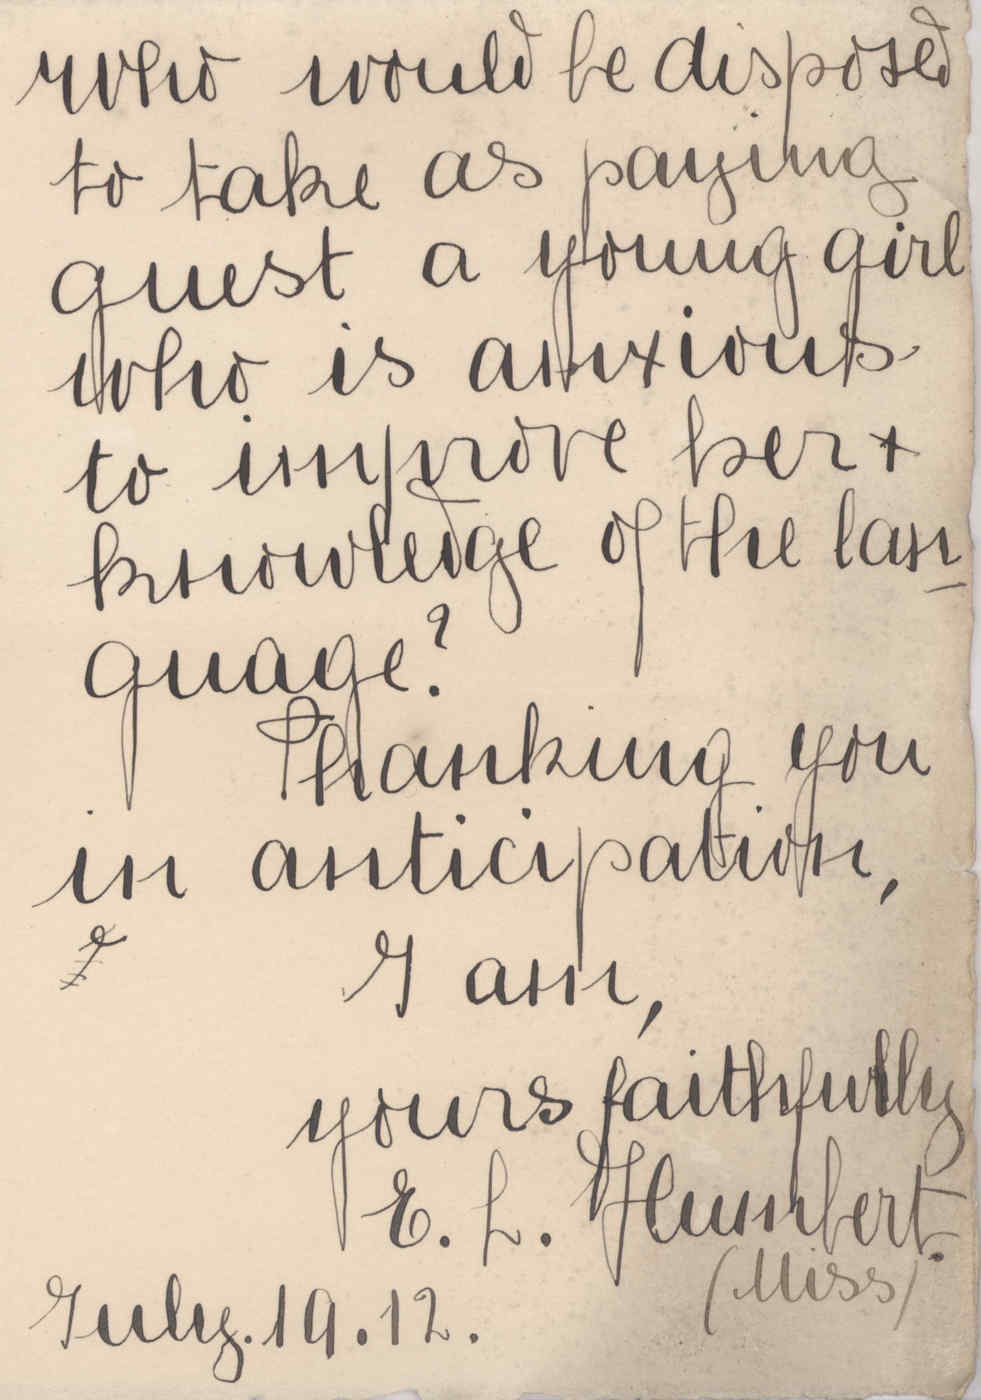 who would be disposed
to take as paying
guest a young girl
who is anxious
to improve her +
knowledge of the lan
guage?
Thanking you
in anticipation,
I am,
yours faithfully
E. L. Humbert.
(Miss)
July. 19. 12.